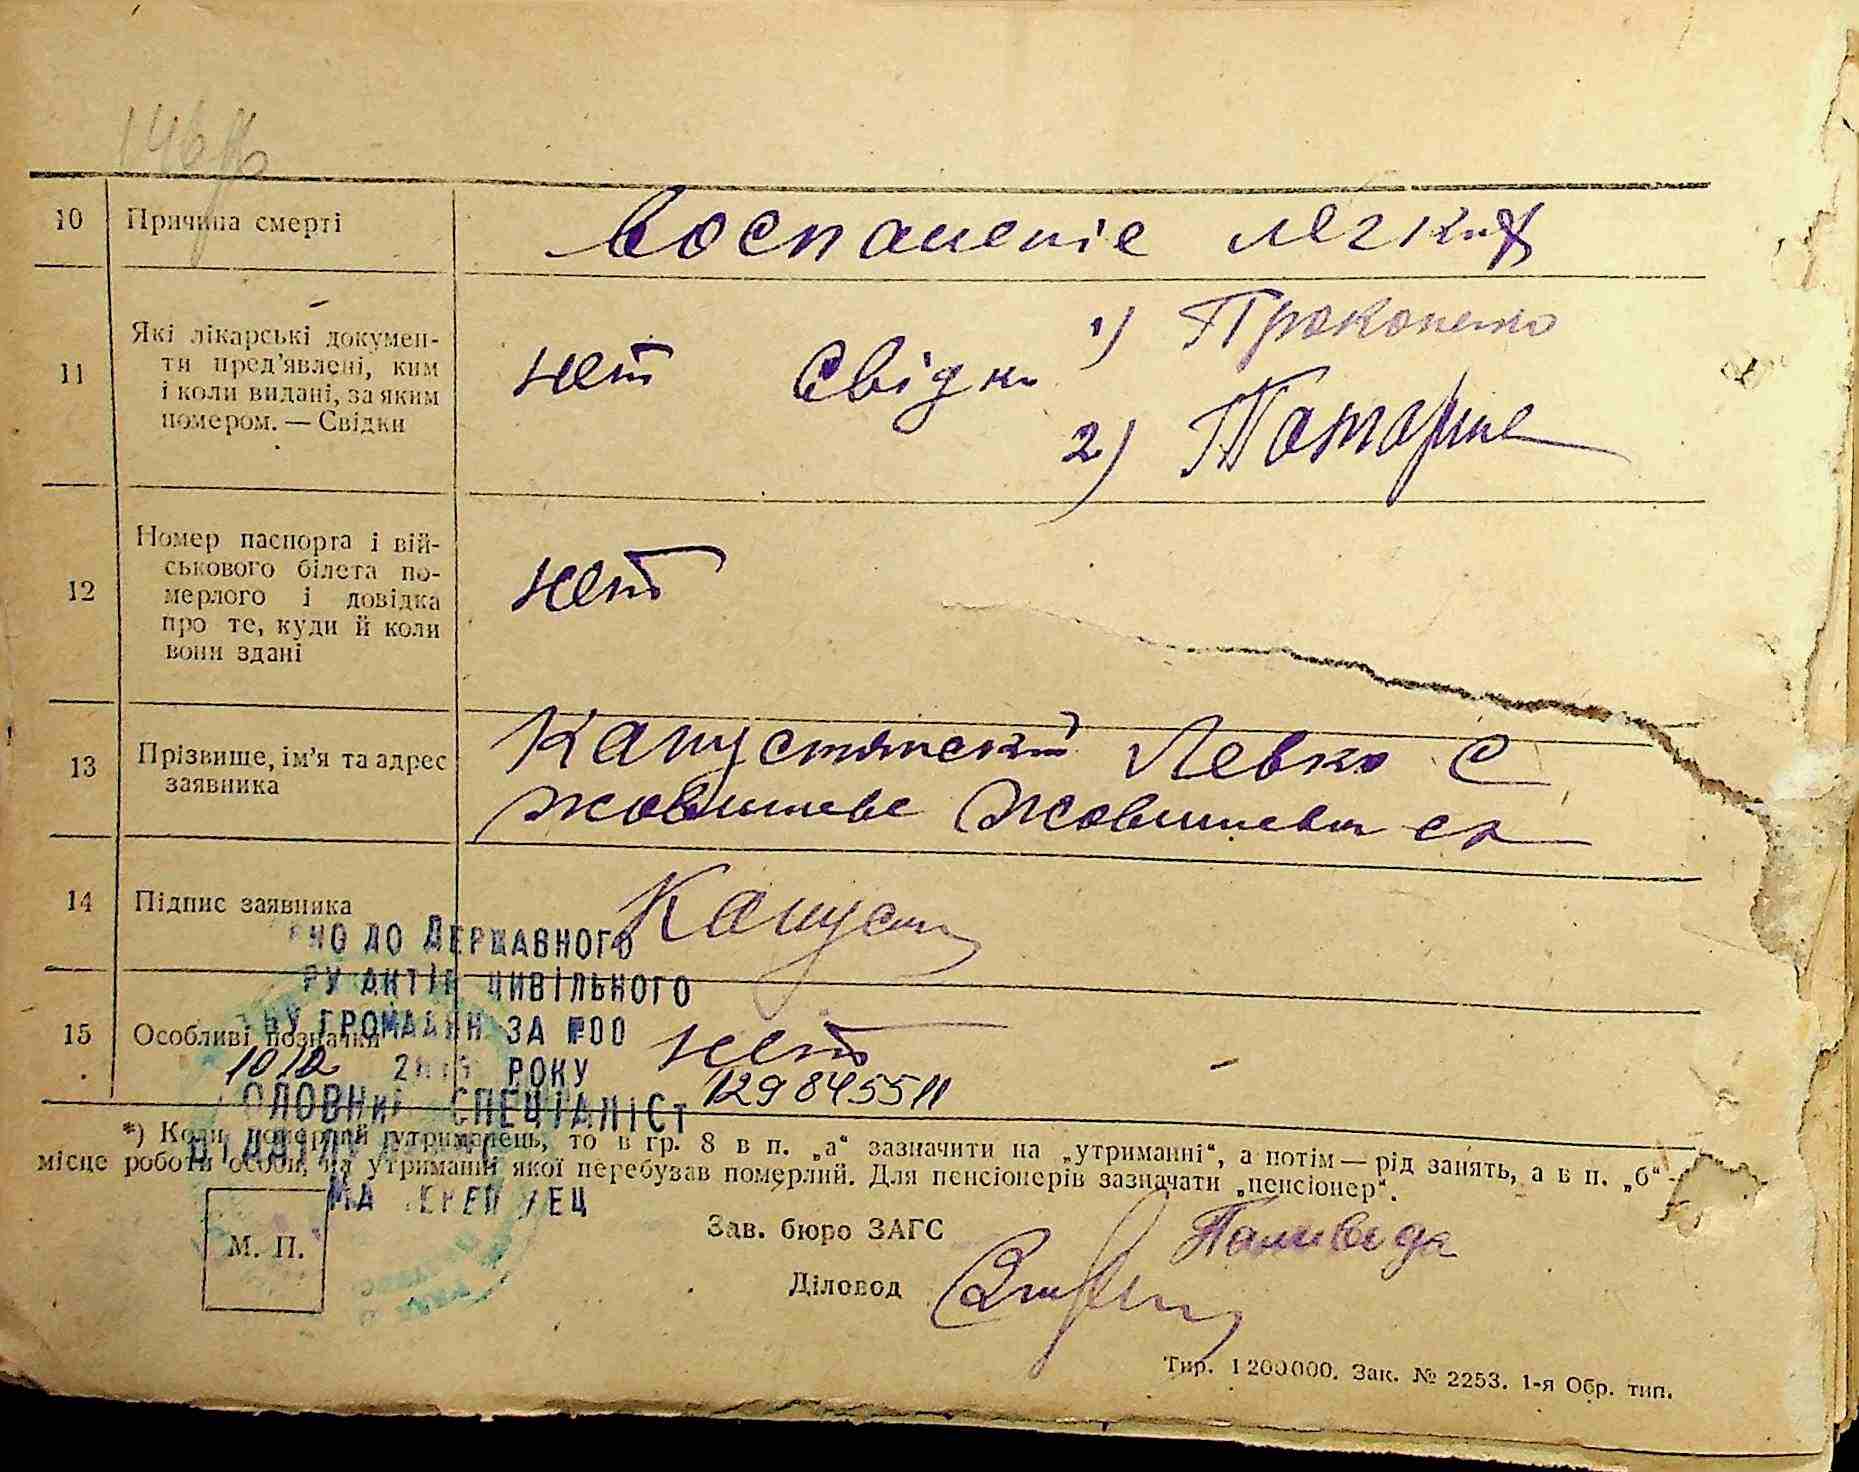 10 Причина смерті
Воспаленіе легких
11 Які лікарські докумен-
ти пред'явлені, ким
і коли видані, за яким
номером. — Свідки
нет Свідки 1) Прокопенко
2)
12 Номер паспорта і вій-
ськового білета по-
мерлого і довідка
про те, куди й коли
вони здані
нет
13 Прізвище, ім'я та адрес
заявника
Капустянский Левко С
14 Підпис заявника
Капуст
НО ДО ДЕРЖАВНОГО
РУ АКТІВ ЦИВІЛЬНОГО
НУ ГРОМАДЯН ЗА №00
15 Особливі позначки
нет
1012 РОКУ
129845511
ОЛОВНИЙ СПЕЦІАЛІСТ
*) Коли померлий утриманець, то в гр. 8 в п. „а“ зазначити на „утриманні“, а потім — рід занять, а в п. „б“ —
місце роботи особи, на утриманні якої перебував померлий. Для пенсіонерів зазначати „пенсіонер“.
ВІДДІЛУ
М. П.
Зав. бюро ЗАГС
Діловод
Тир. 1200000. Зак. № 2253. 1-я Обр. тип.